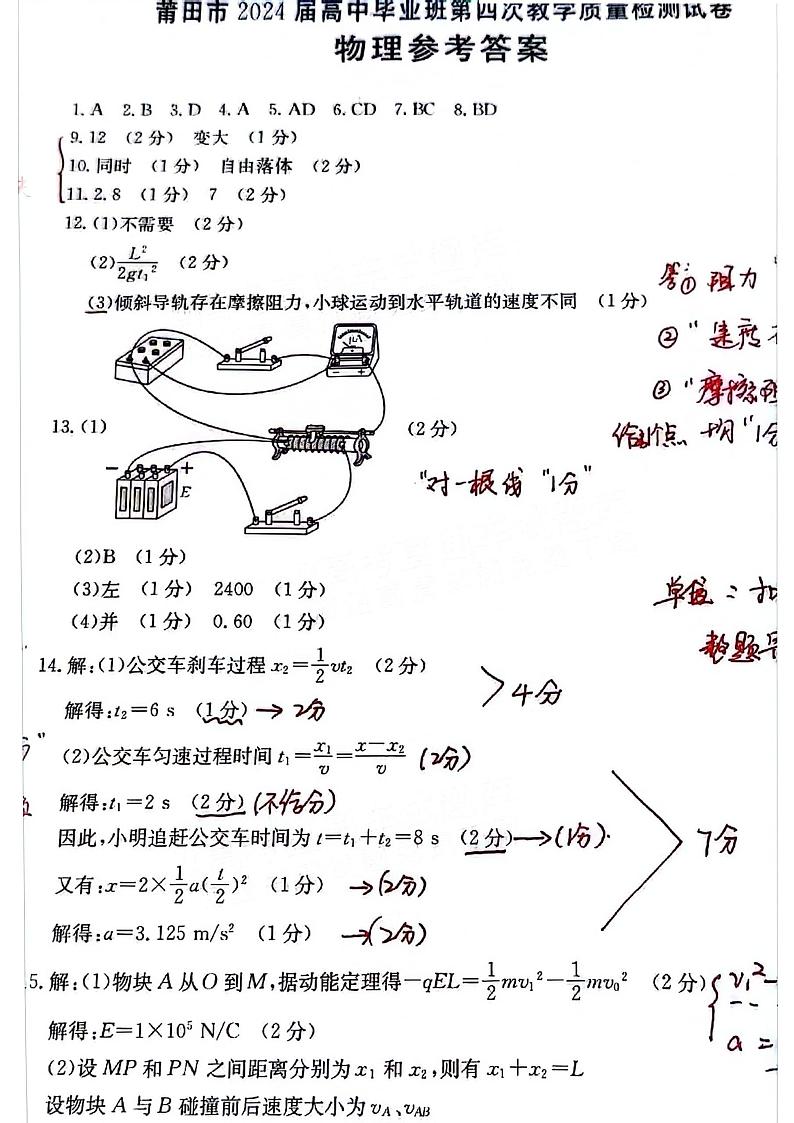 莆田市 2024 届高中毕业班第四次教学质量检测试卷
物理参考答案
1. A 2. B 3. D 4. A 5. AD 6. CD 7. BC 8. BD
9. 12 （2分） 变大 （1分）
10. 同时 （1分） 自由落体 （2分）
11. 2.8 （1分） 7 （2分）
12. (1)不需要 （2分）
(2) L²/2gt₁² （2分）
(3)倾斜导轨存在摩擦阻力,小球运动到水平轨道的速度不同 （1分）
① 阻力
② "速度
③ "摩擦阻
均"1分
μA
− +
13. (1) （2分）
− + E
"对一根线"1分"
(2)B （1分）
(3)左 （1分） 2400 （1分）
(4)并 （1分） 0.60 （1分）
单位:扣
整题
14. 解:(1)公交车刹车过程 x₂=1/2 vt₂ （2分）
解得:t₂=6 s （1分） → 2分
4分
(2)公交车匀速过程时间 t₁=x₁/v=(x−x₂)/v (2分)
解得:t₁=2 s （2分） (不给分)
因此,小明追赶公交车时间为 t=t₁+t₂=8 s （2分） → (1分)
7分
又有:x=2×1/2 a(t/2)² （1分） → (2分)
解得:a=3.125 m/s² （1分） → (2分)
5. 解:(1)物块 A 从 O 到 M,据动能定理得−qEL=1/2 mv₁²−1/2 mv₀² （2分） v₁²−
解得:E=1×10⁵ N/C （2分） a =
(2)设 MP 和 PN 之间距离分别为 x₁ 和 x₂,则有 x₁+x₂=L
设物块 A 与 B 碰撞前后速度大小为 v_A、v_AB